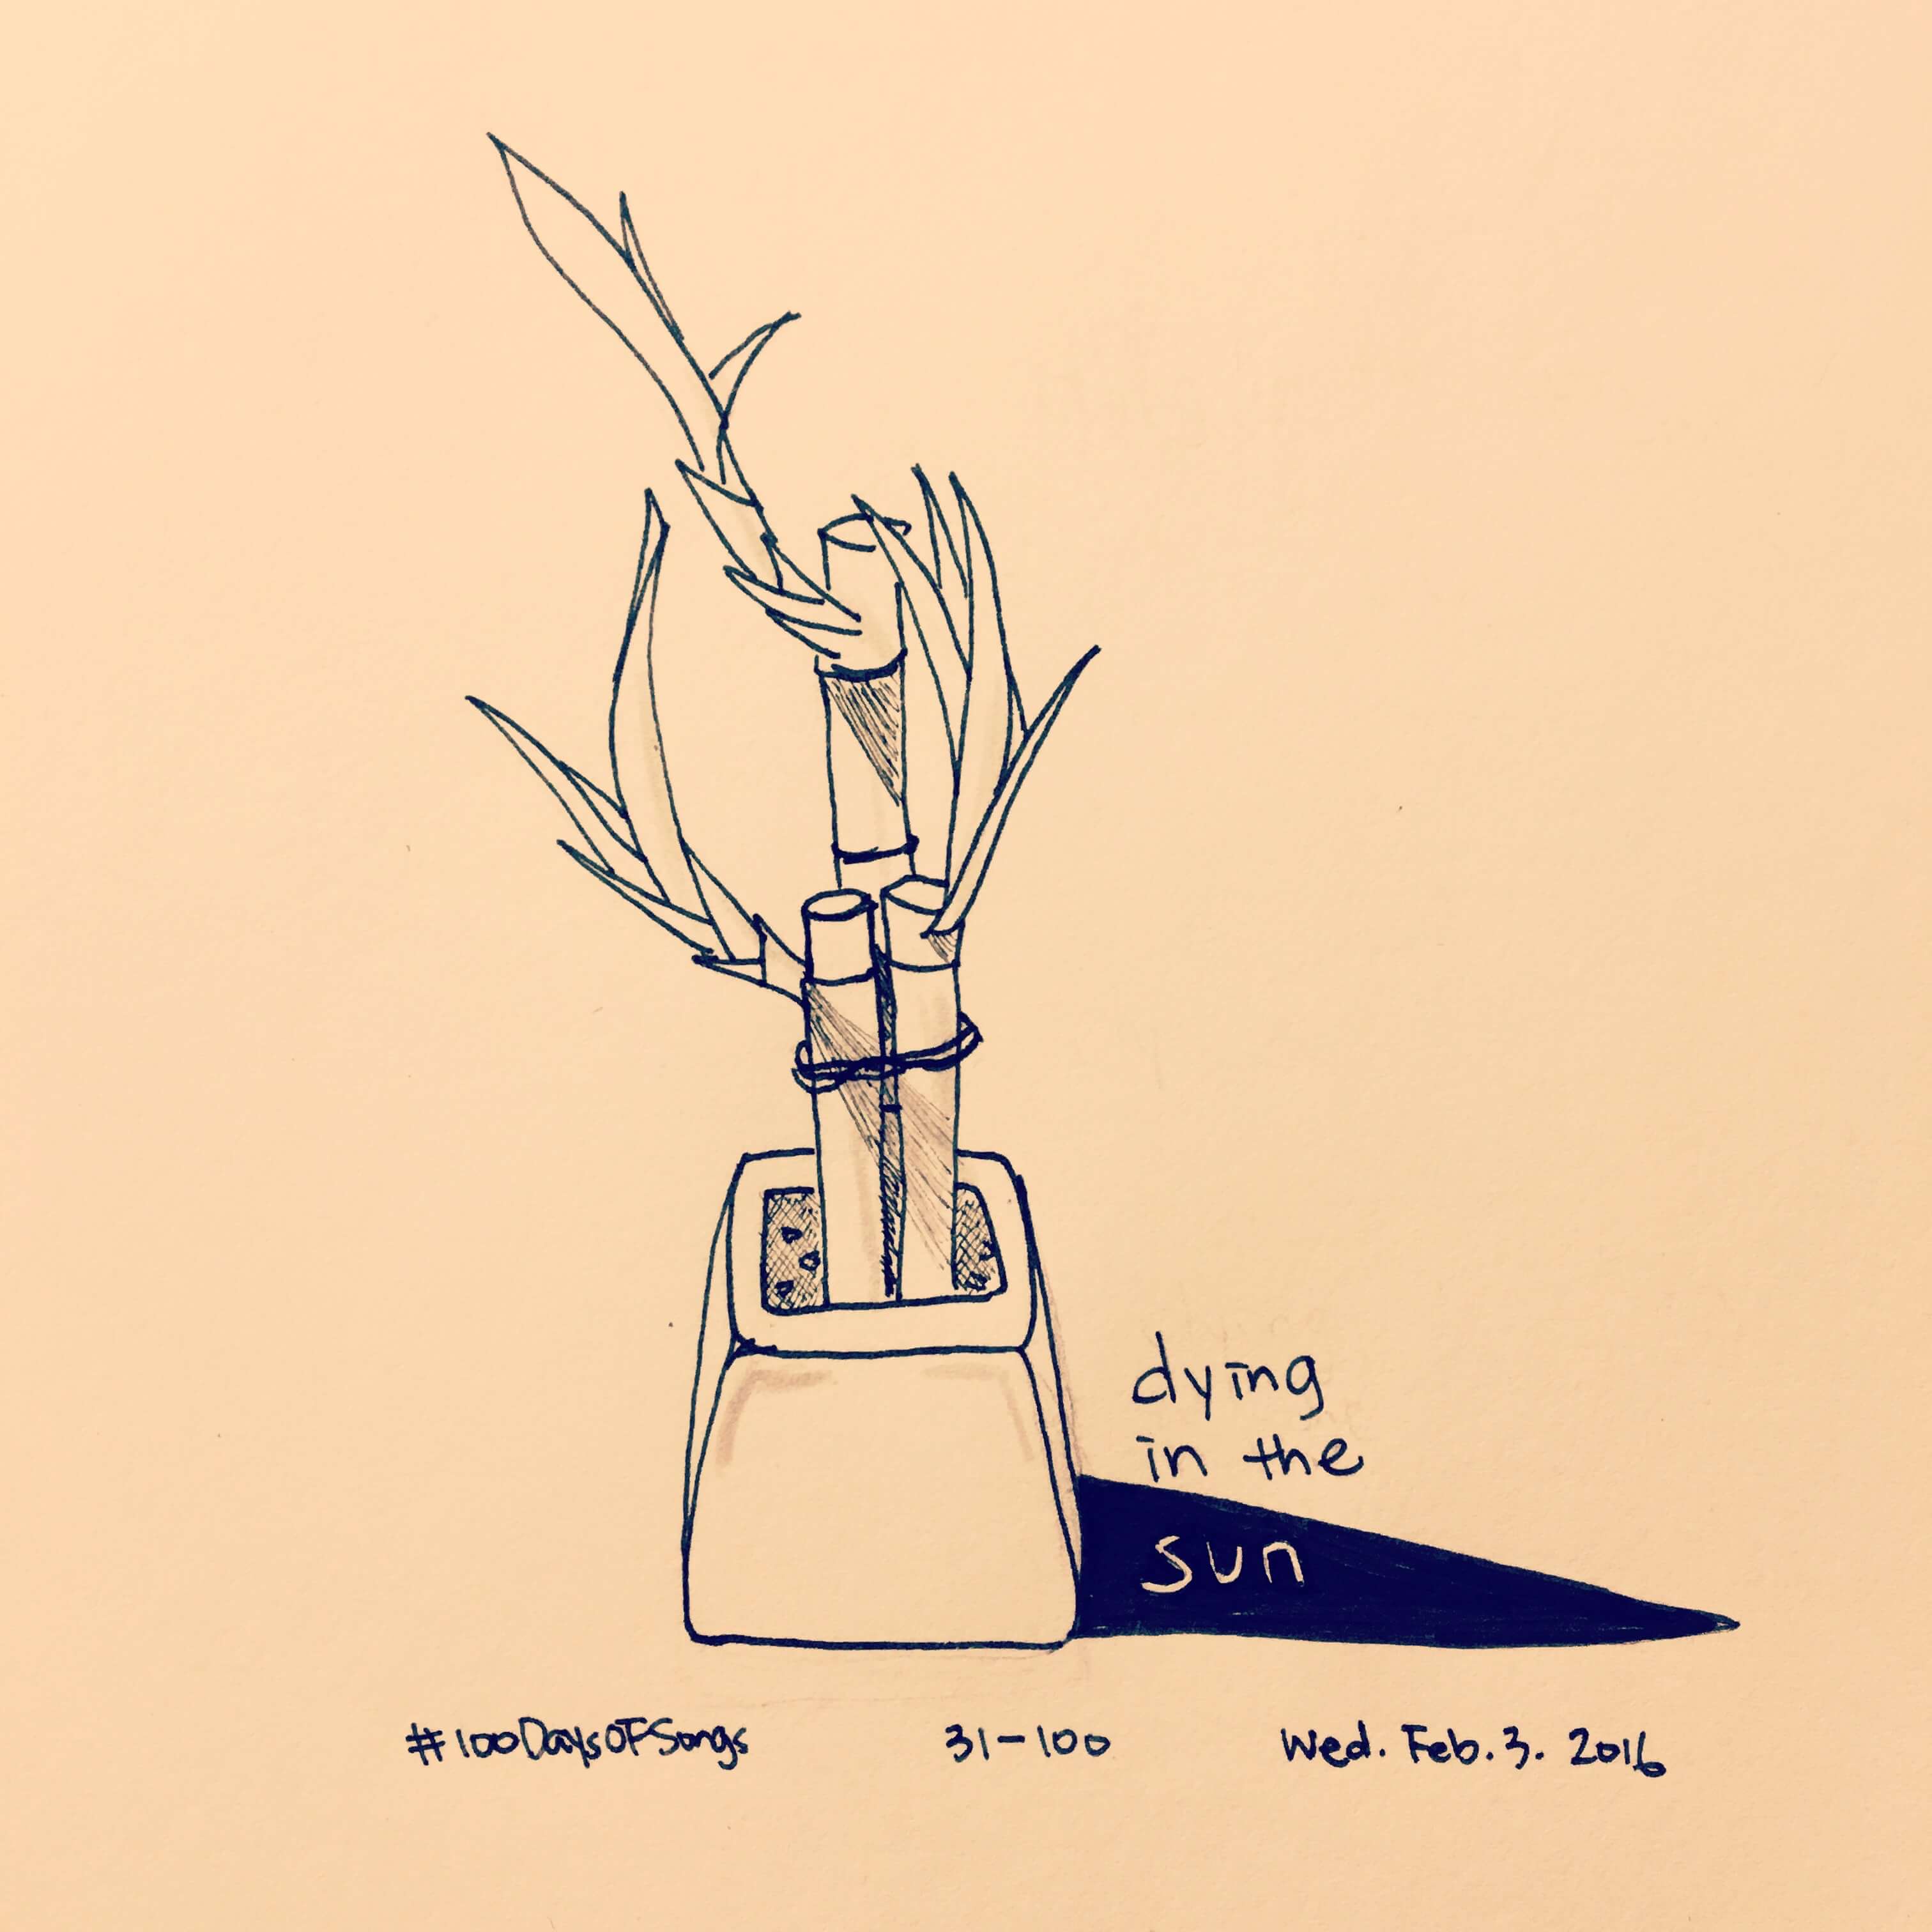 dying
in the
sun
#100DaysOfSongs 31-100 Wed. Feb. 3. 2016